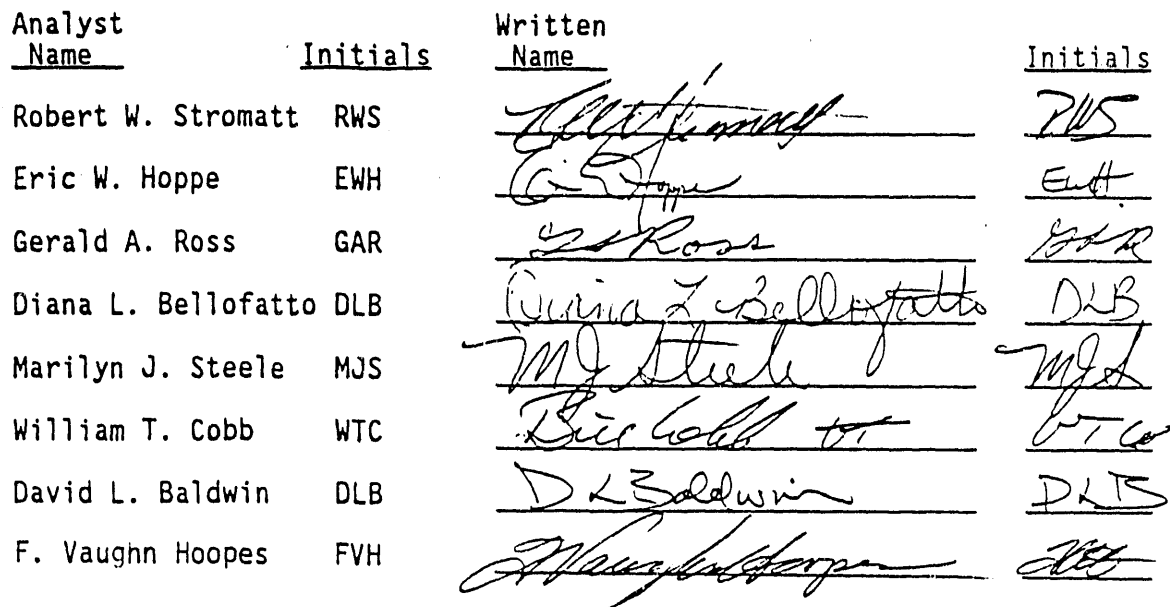 Analyst Written
Name Initials Name Initials
Robert W. Stromatt RWS RWS
Eric W. Hoppe EWH Hoppe EWH
Gerald A. Ross GAR Ross
Diana L. Bellofatto DLB Diana L Bellofatto DLB
Marilyn J. Steele MJS MJ Steele MJS
William T. Cobb WTC Bill Cobb WT WTCo
David L. Baldwin DLB D L Baldwin DLB
F. Vaughn Hoopes FVH F Vaughn Hoopes